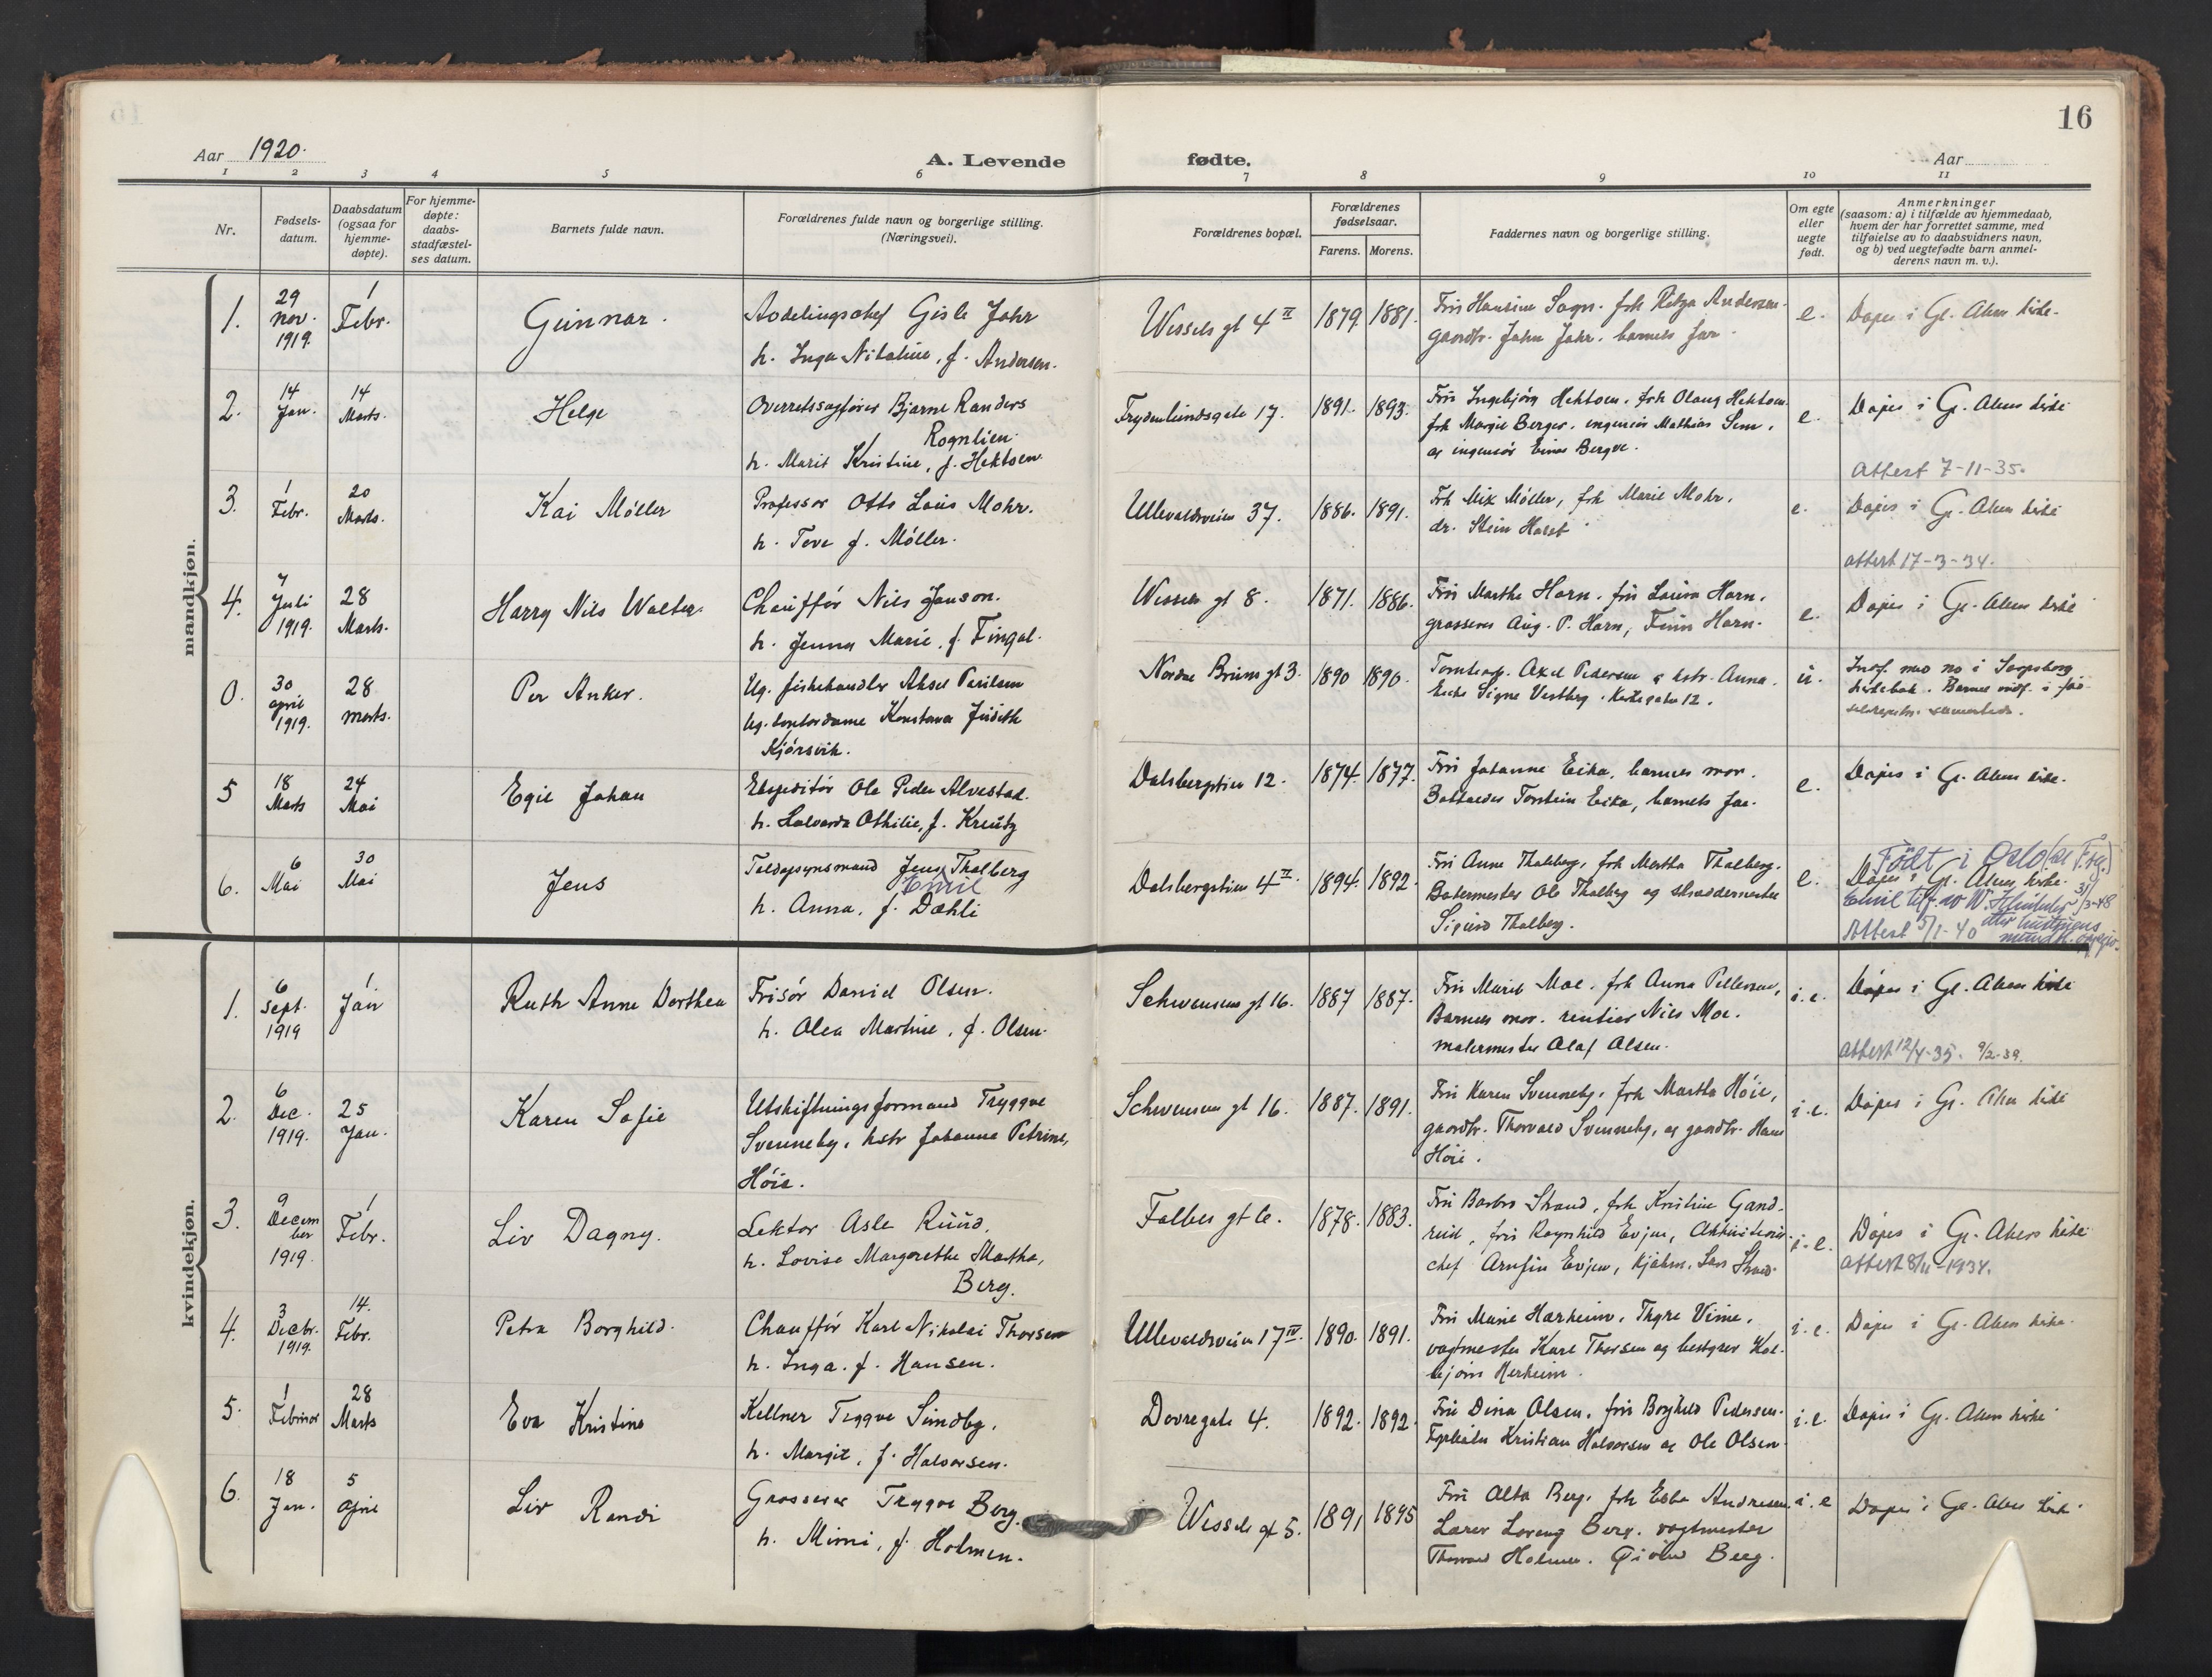 16
Aar 1920.
A. Levende fødte.
Aar
1 2 3 4 5 6 7 8 9 10 11
Nr.
Fødsels-
datum.
Daabsdatum
(ogsaa for
hjemme-
døpte).
For hjemme-
døpte:
daabs-
stadfæstel-
ses datum.
Barnets fulde navn.
Forældrenes fulde navn og borgerlige stilling.
(Næringsvei).
Forældrenes bopæl.
Forældrenes
fødselsaar.
Farens. Morens.
Faddernes navn og borgerlige stilling.
Om egte
eller
uegte
født.
Anmerkninger
(saasom: a) i tilfælde av hjemmedaab,
hvem der har forrettet samme, med
tilføielse av to daabsvidners navn,
og b) ved uegtefødte barn anmel-
derens navn m. v.).
mandkjøn.
1.
29
nov.
1919.
1
Febr.
Gunnar.
Avdelingschef Gisle Jahr
h. Inga Nikoline, f. Andersen.
Wessels gt 4 II
1879 1881.
Fru Hansine Sogn. frk Andersen.
gaardbr. John Jahr. barnets far.
e.
Døpt i Gl. Aker kirke.
2.
14
Jan.
14
Marts.
Helge
Overretssagfører Bjarne Randers
Rognlien.
h. Marit Kristine, f. Hektoen.
Frydenlundsgate 17.
1891. 1893.
Fru Ingebjørg Hektoen. frk Olaug Hektoen.
frk Margit Berger. ingeniør Mathias Sem.
og ingeniør Einar Bergve.
e.
Døpt i Gl. Aker kirke
Attest 7-11-35.
3.
1
Febr.
20
Marts.
Kai Møller
Professor Otto Louis Mohr.
h. Tove f. Møller.
Ullevaldsveien 37.
1886. 1891.
Frk Mix Møller, frk Marie Mohr.
dr. Stein
e.
Døpt i Gl. Aker kirke
attest 17-3-34.
4.
7
Juli
1919.
28
Marts.
Harry Nils Walter.
Chauffør Nils Janson.
h. Jenny Marie, f. Fingal.
Wessels gt 8.
1871. 1886.
Fru Marthe Horn. fru Laura Horn.
grosserer Aug. P. Horn, Finn Horn.
e.
Døpt i Gl. Aker kirke
0.
30
april
1919.
28
marts.
Per Anker.
Ug. fiskehandler Aksel
Ug. kontordame Konstance Judith
Kjørsvik.
Nordre Bruns gt 3.
1890 1890.
Axel Pedersen og hstr. Anna.
Signe Vestberg. Kirkegaten 12.
u.
Indf. med no i Sarpsborg
kirkebok. Barnet indf. i
5
18
Marts
24
Mai
Egil Johan
Ekspeditør Ole Peder Alvestad.
h. Halvarda Othilie, f. Kreutz
Dalsbergstien 12.
1874. 1877.
Fru Johanne Eika, barnets mor.
Torstein Eika, barnets far.
e.
Døpt i Gl. Aker kirke.
6.
6
Mai
30
Mai
Jens
Toldopsynsmand Jens Thalberg
Emil
h. Anna, f. Dæhli
Dalsbergstien 4 II.
1894. 1892.
Fru Anne Thalberg, frk Martha Thalberg.
Bakermester Ole Thalberg og skræddermester
Sigurd Thalberg.
e.
Født i Oslo
Døpt i Gl. Aker kirke.
Emil
31/3-48
etter hustruens
Attest 5/1-40
kvindekjøn.
1.
6
Sept.
1919
1.
Jan
Ruth Anne Dorthea
Frisør Daniel Olsen.
h. Olea Martine, f. Olsen.
Schwensens gt 16.
1887 1887.
Fru Marie Moe. frk Anna Pettersen,
Barnets mor. rentier Nils Moe.
malermester Olaf Olsen.
i. e.
Døpt i Gl. Aker kirke
attest 12/4-35. 9/2-39.
2.
6
Dec.
1919.
25
Jan.
Karen Sofie
Utskiftningsformand Tryggve
Svenneby. hstr Johanne Petrine,
Høie.
Schwensens gt 16.
1887. 1891.
Fru Karen Svenneby, frk Martha Høie,
gaardbr. Thorvald Svenneby, og gaardbr. Hans
Høie.
i. e.
Døpt i Gl. Aker kirke
3.
9
Decem
ber
1919.
1
Febr.
Liv Dagny.
Lektor Asle Ruud.
h. Lovise Margarethe Martha,
Berg.
Falbes gt 6.
1878. 1883.
Fru Barbro Strand, frk Kristine Gand-
rud, fru Ragnhild Evjen,
chef Arnfin Evjen, kjøbm. Lars Strand.
i. e.
Døpt i Gl. Akers kirke
attest 8/11-1934.
4.
3
Decbr.
1919.
14.
Febr.
Petra Borghild.
Chauffør Karl Nikolai Thorsen
h. Inga. f. Hansen.
Ullevaldsveien 17 IV.
1890. 1891.
Fru Marie Harheim, Thyre Vinie,
vagtmester Karl Thorsen og bestyrer Kol-
bjørn Herheim.
i. e.
Døpt i Gl. Aker kirke.
5.
1
Februar
28
Marts
Eva Kristine
Kellner Tryggve Sundby.
h. Margit, f. Halvorsen.
Dovregate 4.
1892. 1892.
Fru Dina Olsen, fru Borghild Pedersen.
Kristian Halvorsen og Ole Olsen.
i. e.
Døpt i Gl. Aker kirke
6.
18
Jan.
5
april
Liv Randi
Grosserer Tryggve Berg.
h. Mimi, f. Holmen.
Wessels gt 5.
1891 1895
Fru Alta Berg. frk Ebba Andresen.
Lærer Lorentz Berg. vagtmester
Thorvald Holmen. Øivind Berg.
i. e
Døpt i Gl. Aker kirke.